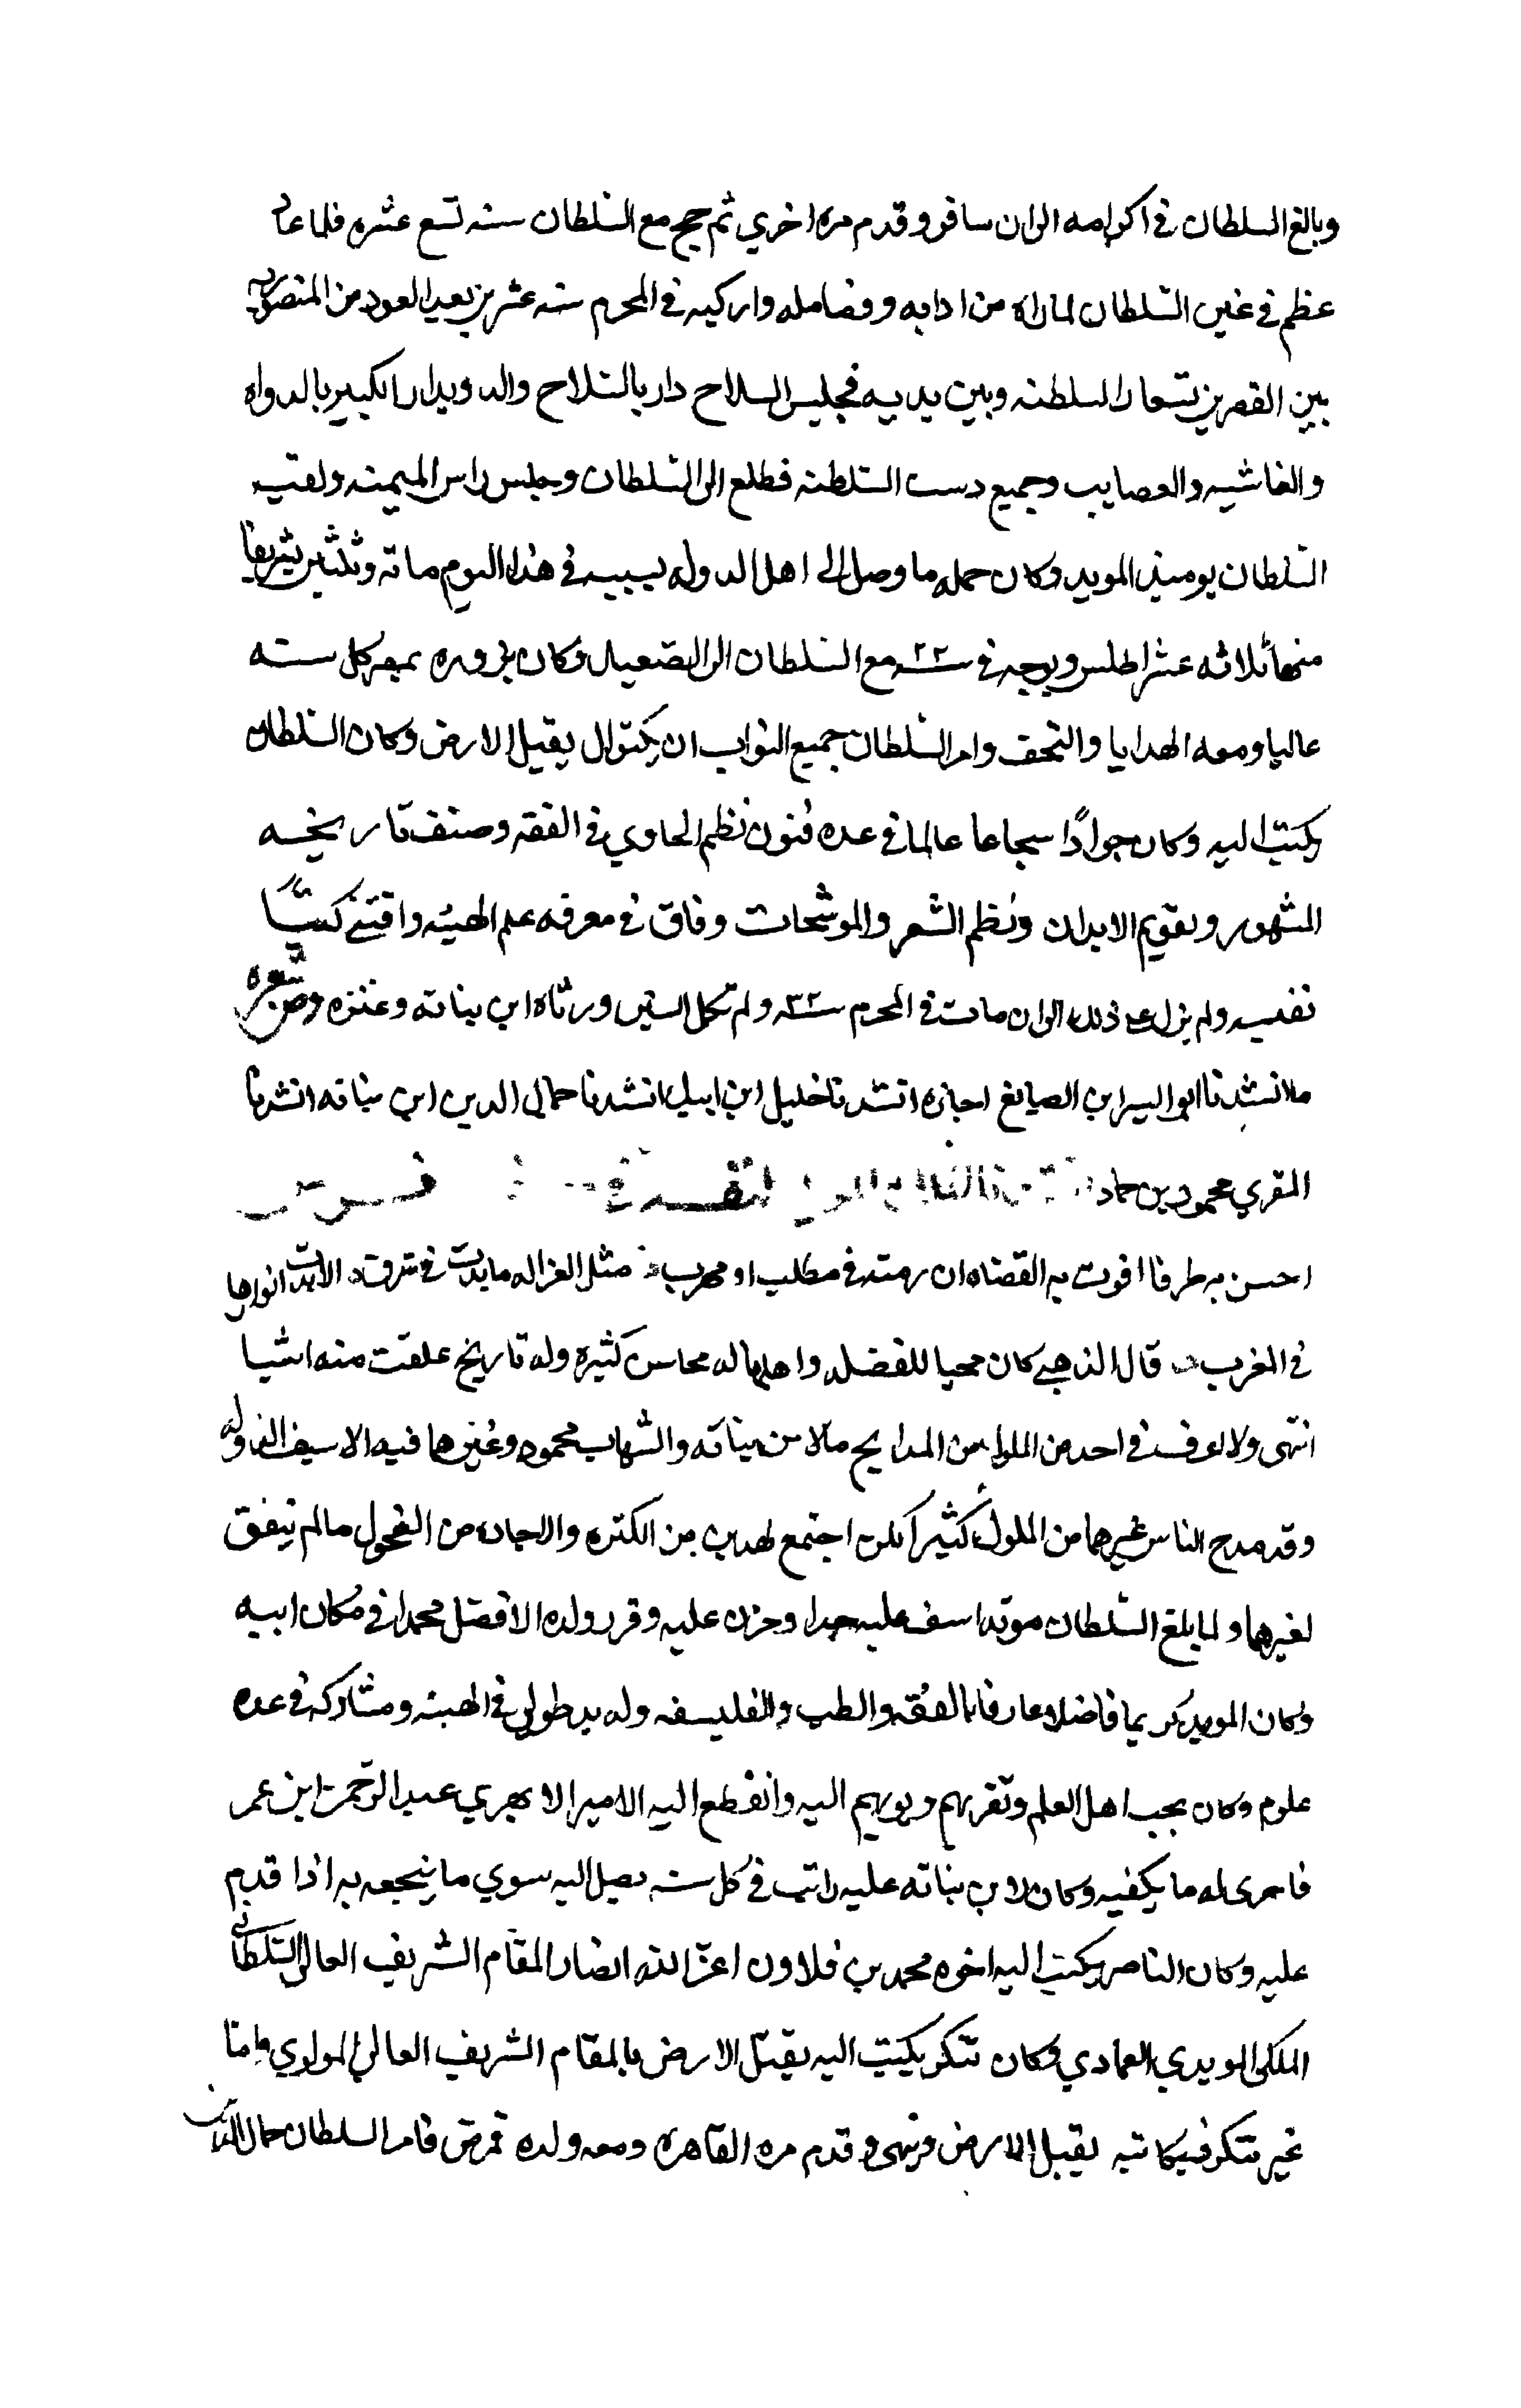 وبالغ السلطان في اكرامه الى ان سافر وقدم مره اخري ثم حج مع السلطان سنه تسع عشره فلما عاد
عظم في عين السلطان لما راه من ادابه وفضايله واركبه في المحرم سنه عشرين بعد العود من المنصوريه
بين القصرين بشعار السلطنه وبين يديه قجليس السلاح دار بالسلاح والدويدار الكبير بالدواه
والغاشيه والعصايب وجميع دست السلطنه فطلع الى السلطان وجلس راس الميمنه ولقبه
السلطان يوميذ المويد وكان جمله ما وصل الى اهل الدوله بسببه في هذا اليوم مائه وثلثين تشريفا
منها ثلاثه عشر اطلس وتوجه في سنه ٢٢ مع السلطان الى الصعيد وكان يزوره بمصر كل سنه
غالبا ومعه الهدايا والتحف وامر السلطان جميع النواب ان يكتبوا له يقبل الارض وكان السلطان
يكتب اليه وكان جوادًا شجاعا عالما في عده فنون نظم الحاوي في الفقه وصنف تاريخه
المشهور وتقويم البلدان ونظم الشعر والموشحات وفاق في معرفه علم الهيئه واقتنى كتبًا
نفيسه ولم يزل على ذلك الى ان مات في المحرم سنه ٣٢ ولم يكمل الستين ورثاه ابن نباته وغيره ومن شعره
ما انشدنا ابو اليسر ابن الصايغ اجازه انشدنا خليل ابن ايبك انشدنا جمال الدين ابن نباته انشدنا
المقري محمود بن حماد
احسن به طرفا افوت به القضاه ان رمته في مطلب او مهرب مثل الغزاله ما بدت في مشرق الا بدت انوارها
في المغرب قال الذهبي كان محبا للفضله واهلها له محاسن كثيره وله تاريخ علقت منه اشيا
انتهى ولا اعرف في احد من الملوك من المدايح ما لابن نباته والشهاب محمود وغيرهما فيه الا سيف الدوله
وقد مدح الناس غيرهما من الملوك كثيرا لكن اجتمع لهدين من الكثره والاجاده من الفحول مالم يتفق
لغيرهما ولما بلغ السلطان موته اسف عليه جدا وحزن عليه وقرر ولده الافضل محمدا في مكان ابيه
وكان المويد كريما فاضلا عارفا بالفقه والطب والفلسفه وله يد طولي في الهيئه ومشاركه في عده
علوم وكان يحب اهل العلم ويقربهم ويويهم اليه وانقطع اليه الامير الابهري عبد الرحمن ابن عمر
فاجرى له ما يكفيه وكان لابن نباته عليه راتب في كل سنه يصل اليه سوي ما يتحفه به اذا قدم
عليه وكان الناصر يكتب اليه اخوه محمد بن قلاون اعز الله انصار المقام الشريف العالي السلطاني
الملكي المويدي العمادي وكان تنكز يكتب اليه يقبل الارض بالمقام الشريف العالي المولوي واما
غير تنكز فيكاتبه يقبل الارض وينهى وقدم مره القاهره ومعه ولده فمرض فامر السلطان جمال الدين